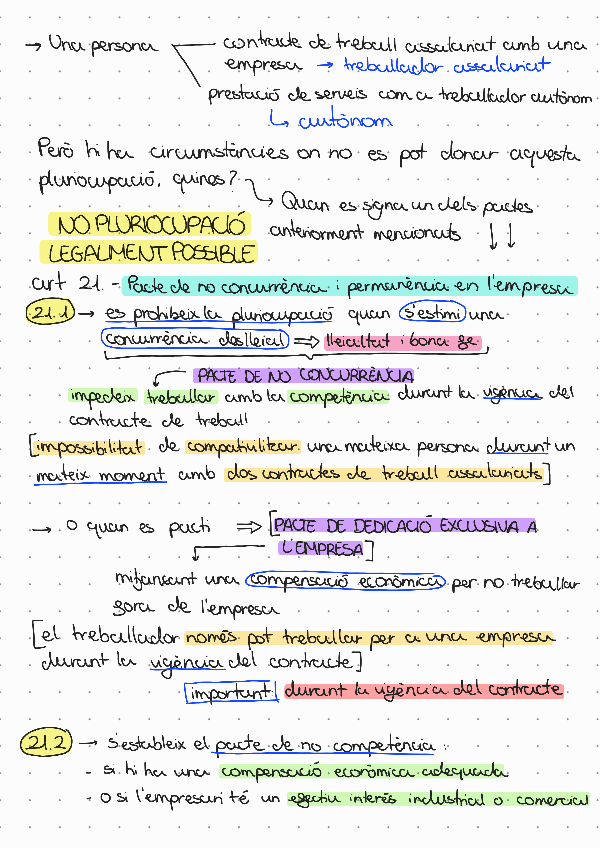 → Una persona — contracte de treball assalariat amb una
empresa → treballador assalariat
prestació de serveis com a treballador autònom
↳ autònom
Però hi ha circumstàncies on no es pot donar aquesta
pluriocupació, quines?
→ Quan es signa un dels pactes
anteriorment mencionats ↓↓
NO PLURIOCUPACIÓ
LEGALMENT POSSIBLE
art 21. - Pacte de no concurrència i permanència en l'empresa
21.1 → es prohibeix la pluriocupació quan s'estimi una
concurrència deslleial ⇒ lleialtat i bona fe
PACTE DE NO CONCURRÈNCIA
impedeix treballar amb la competència durant la vigència del
contracte de treball
[impossibilitat de compatibilitzar una mateixa persona durant un
mateix moment amb dos contractes de treball assalariats]
→ O quan es pacti ⇒ [PACTE DE DEDICACIÓ EXCLUSIVA A
L'EMPRESA]
mitjansant una compensació econòmica per no treballar
fora de l'empresa
[el treballador només pot treballar per a una empresa
durant la vigència del contracte]
important! durant la vigència del contracte
21.2 → s'estableix el pacte de no competència:
- si hi ha una compensació econòmica adequada
- o si l'empresari té un efectiu interès industrial o comercial